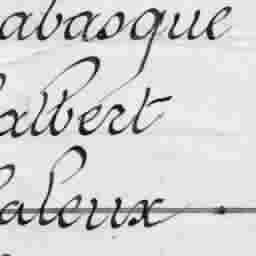 abasque
albert
aleux.